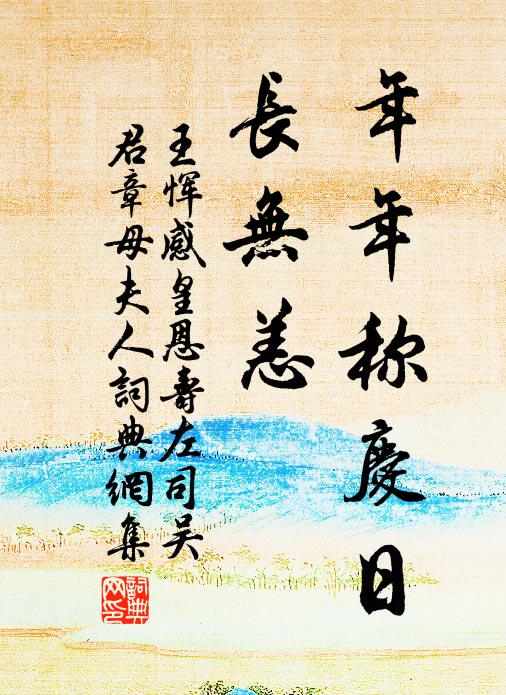 年年称慶日
長無恙
王恽感皇恩壽左司吴
君章母夫人詞典網集
詞典
网印